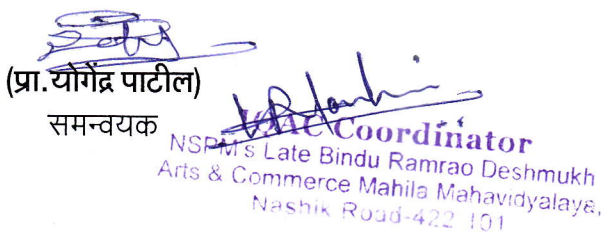 (प्रा.योगेंद्र पाटील)
समन्वयक
Coordinator
NSPM's Late Bindu Ramrao Deshmukh
Arts & Commerce Mahila Mahavidyalaya,
Nashik Road-422 101